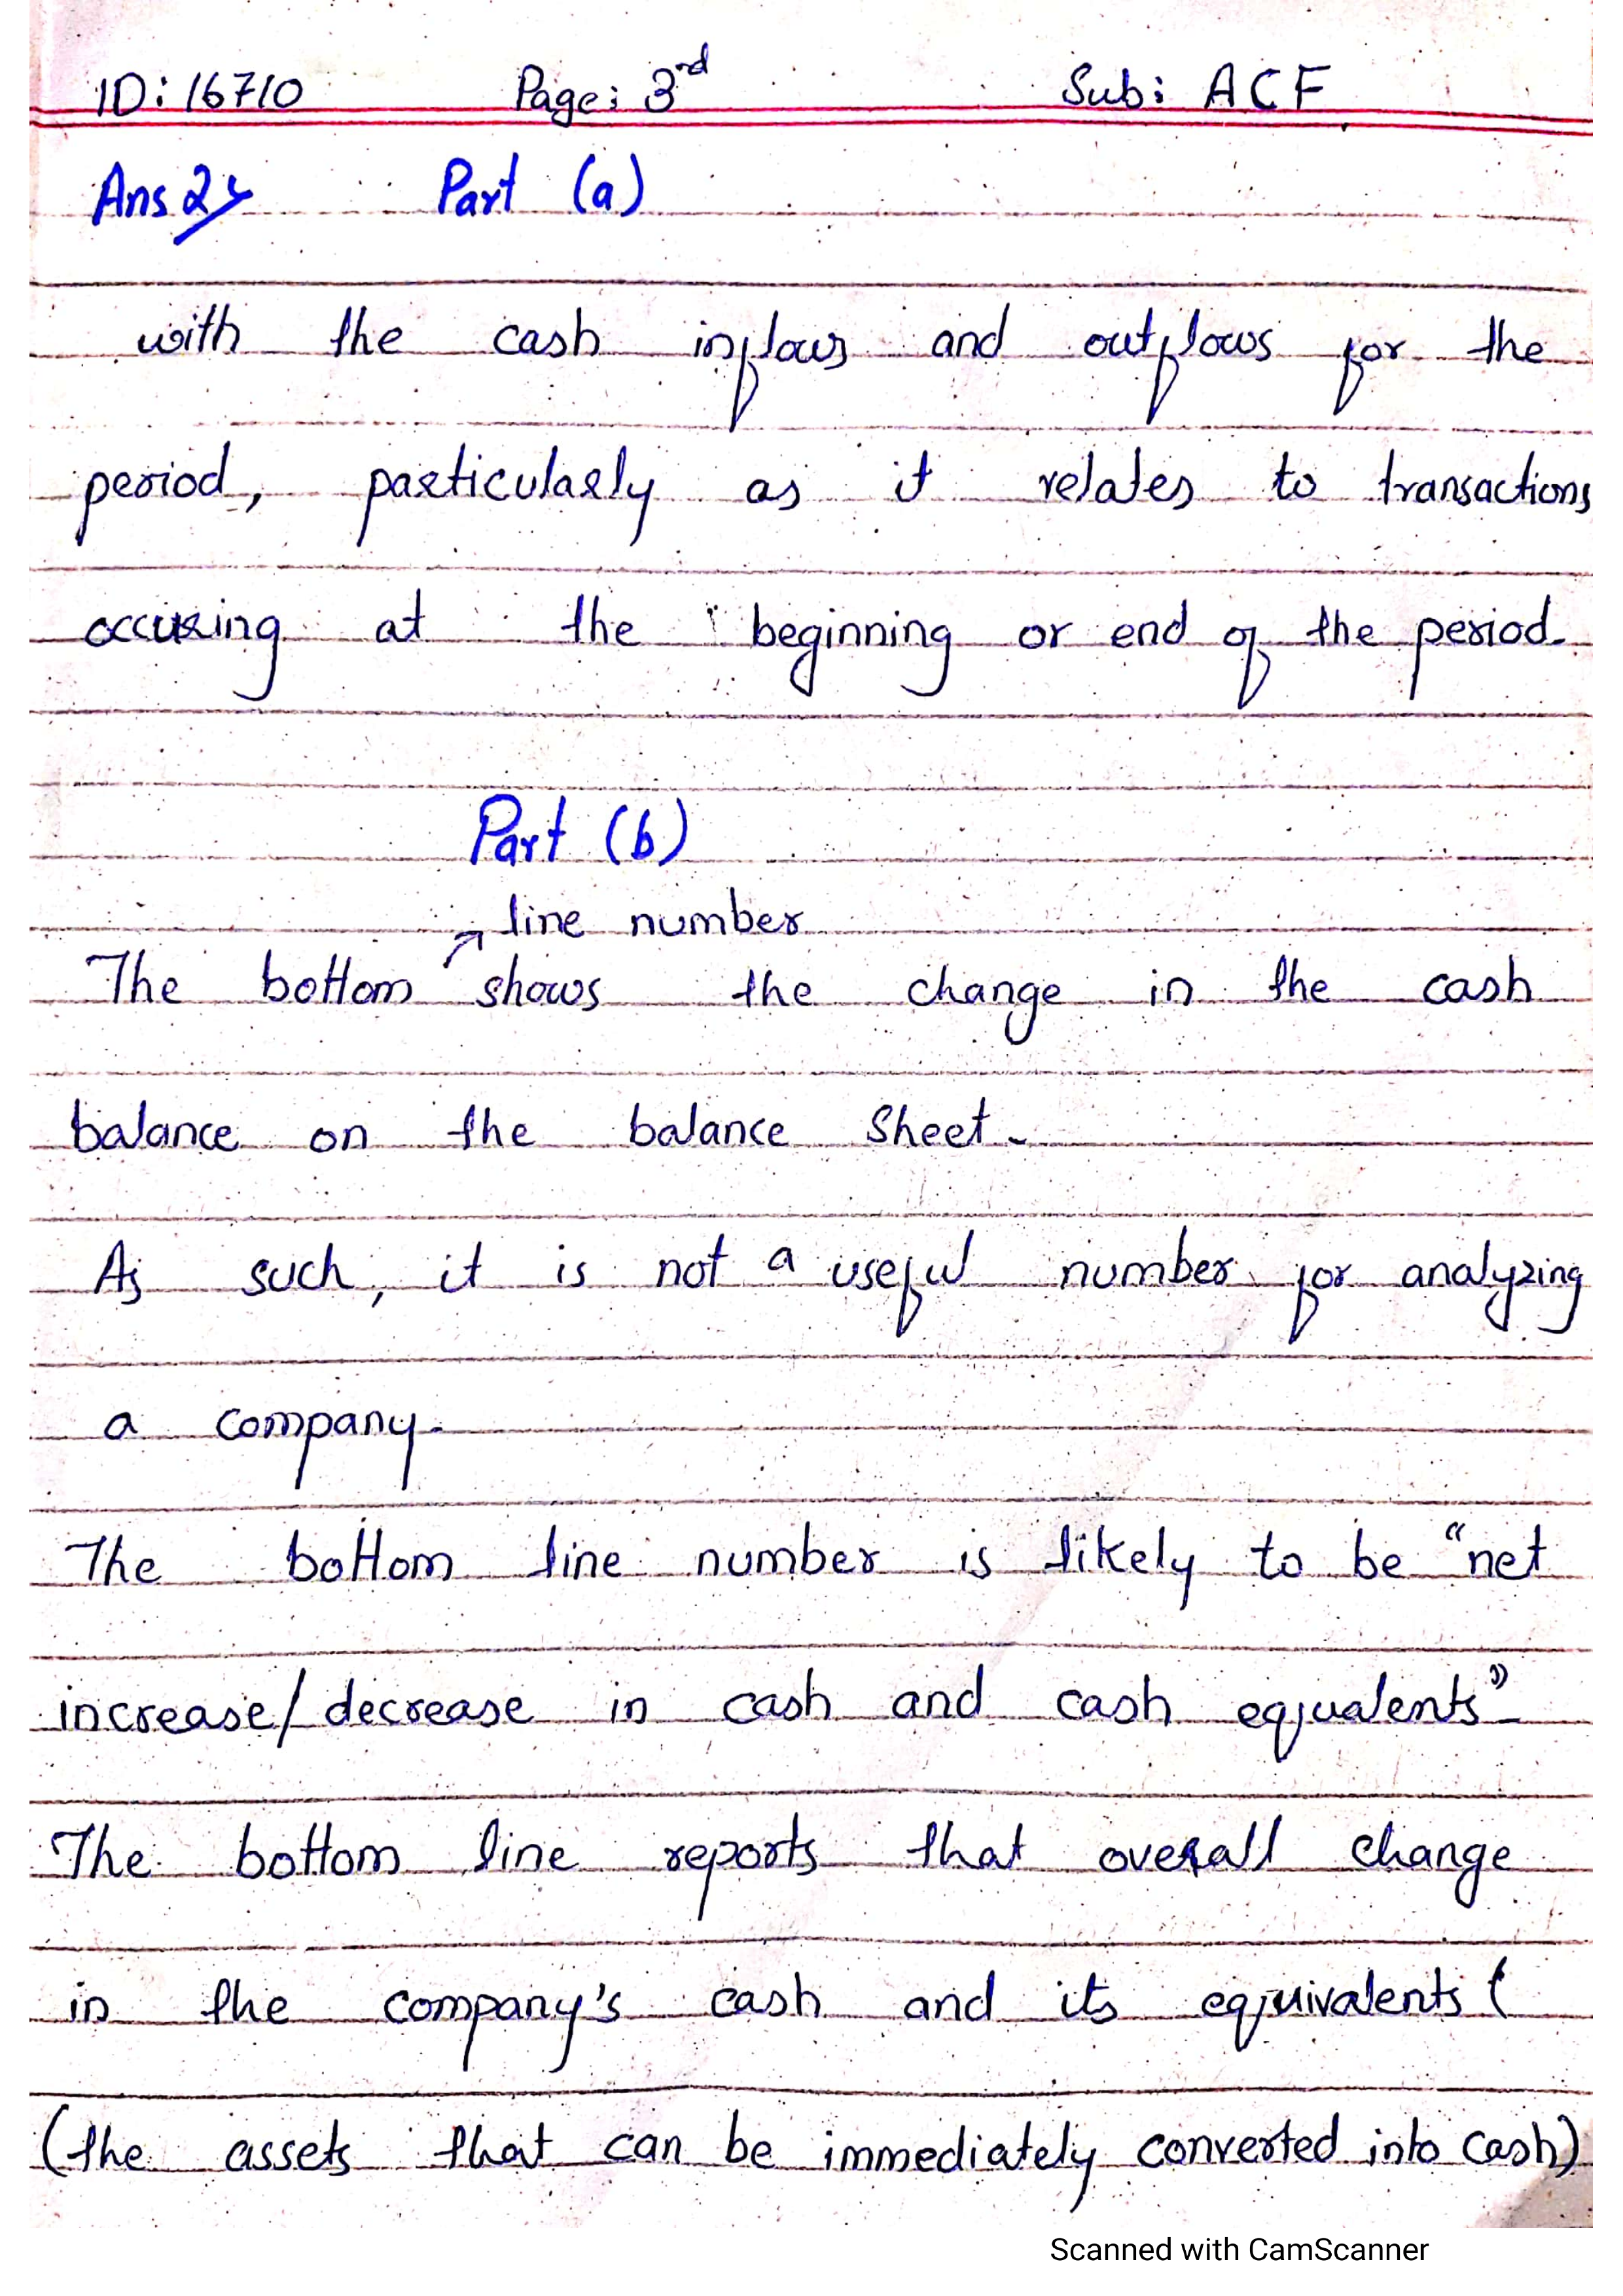 ID: 16710 Page: 3rd Sub: ACF
Ans 2> Part (a)
with the cash inflows and outflows for the
period, particularly as it relates to transactions
occuring at the beginning or end of the period.
Part (b)
line number
The bottom shows the change in the cash
balance on the balance Sheet.
As such, it is not a useful number for analyzing
a company.
The bottom line number is likely to be "net
increase/decrease in cash and cash equalents".
The bottom line reports that overall change
in the company's cash and its equivalents (
(the assets that can be immediately converted into Cash)
Scanned with CamScanner